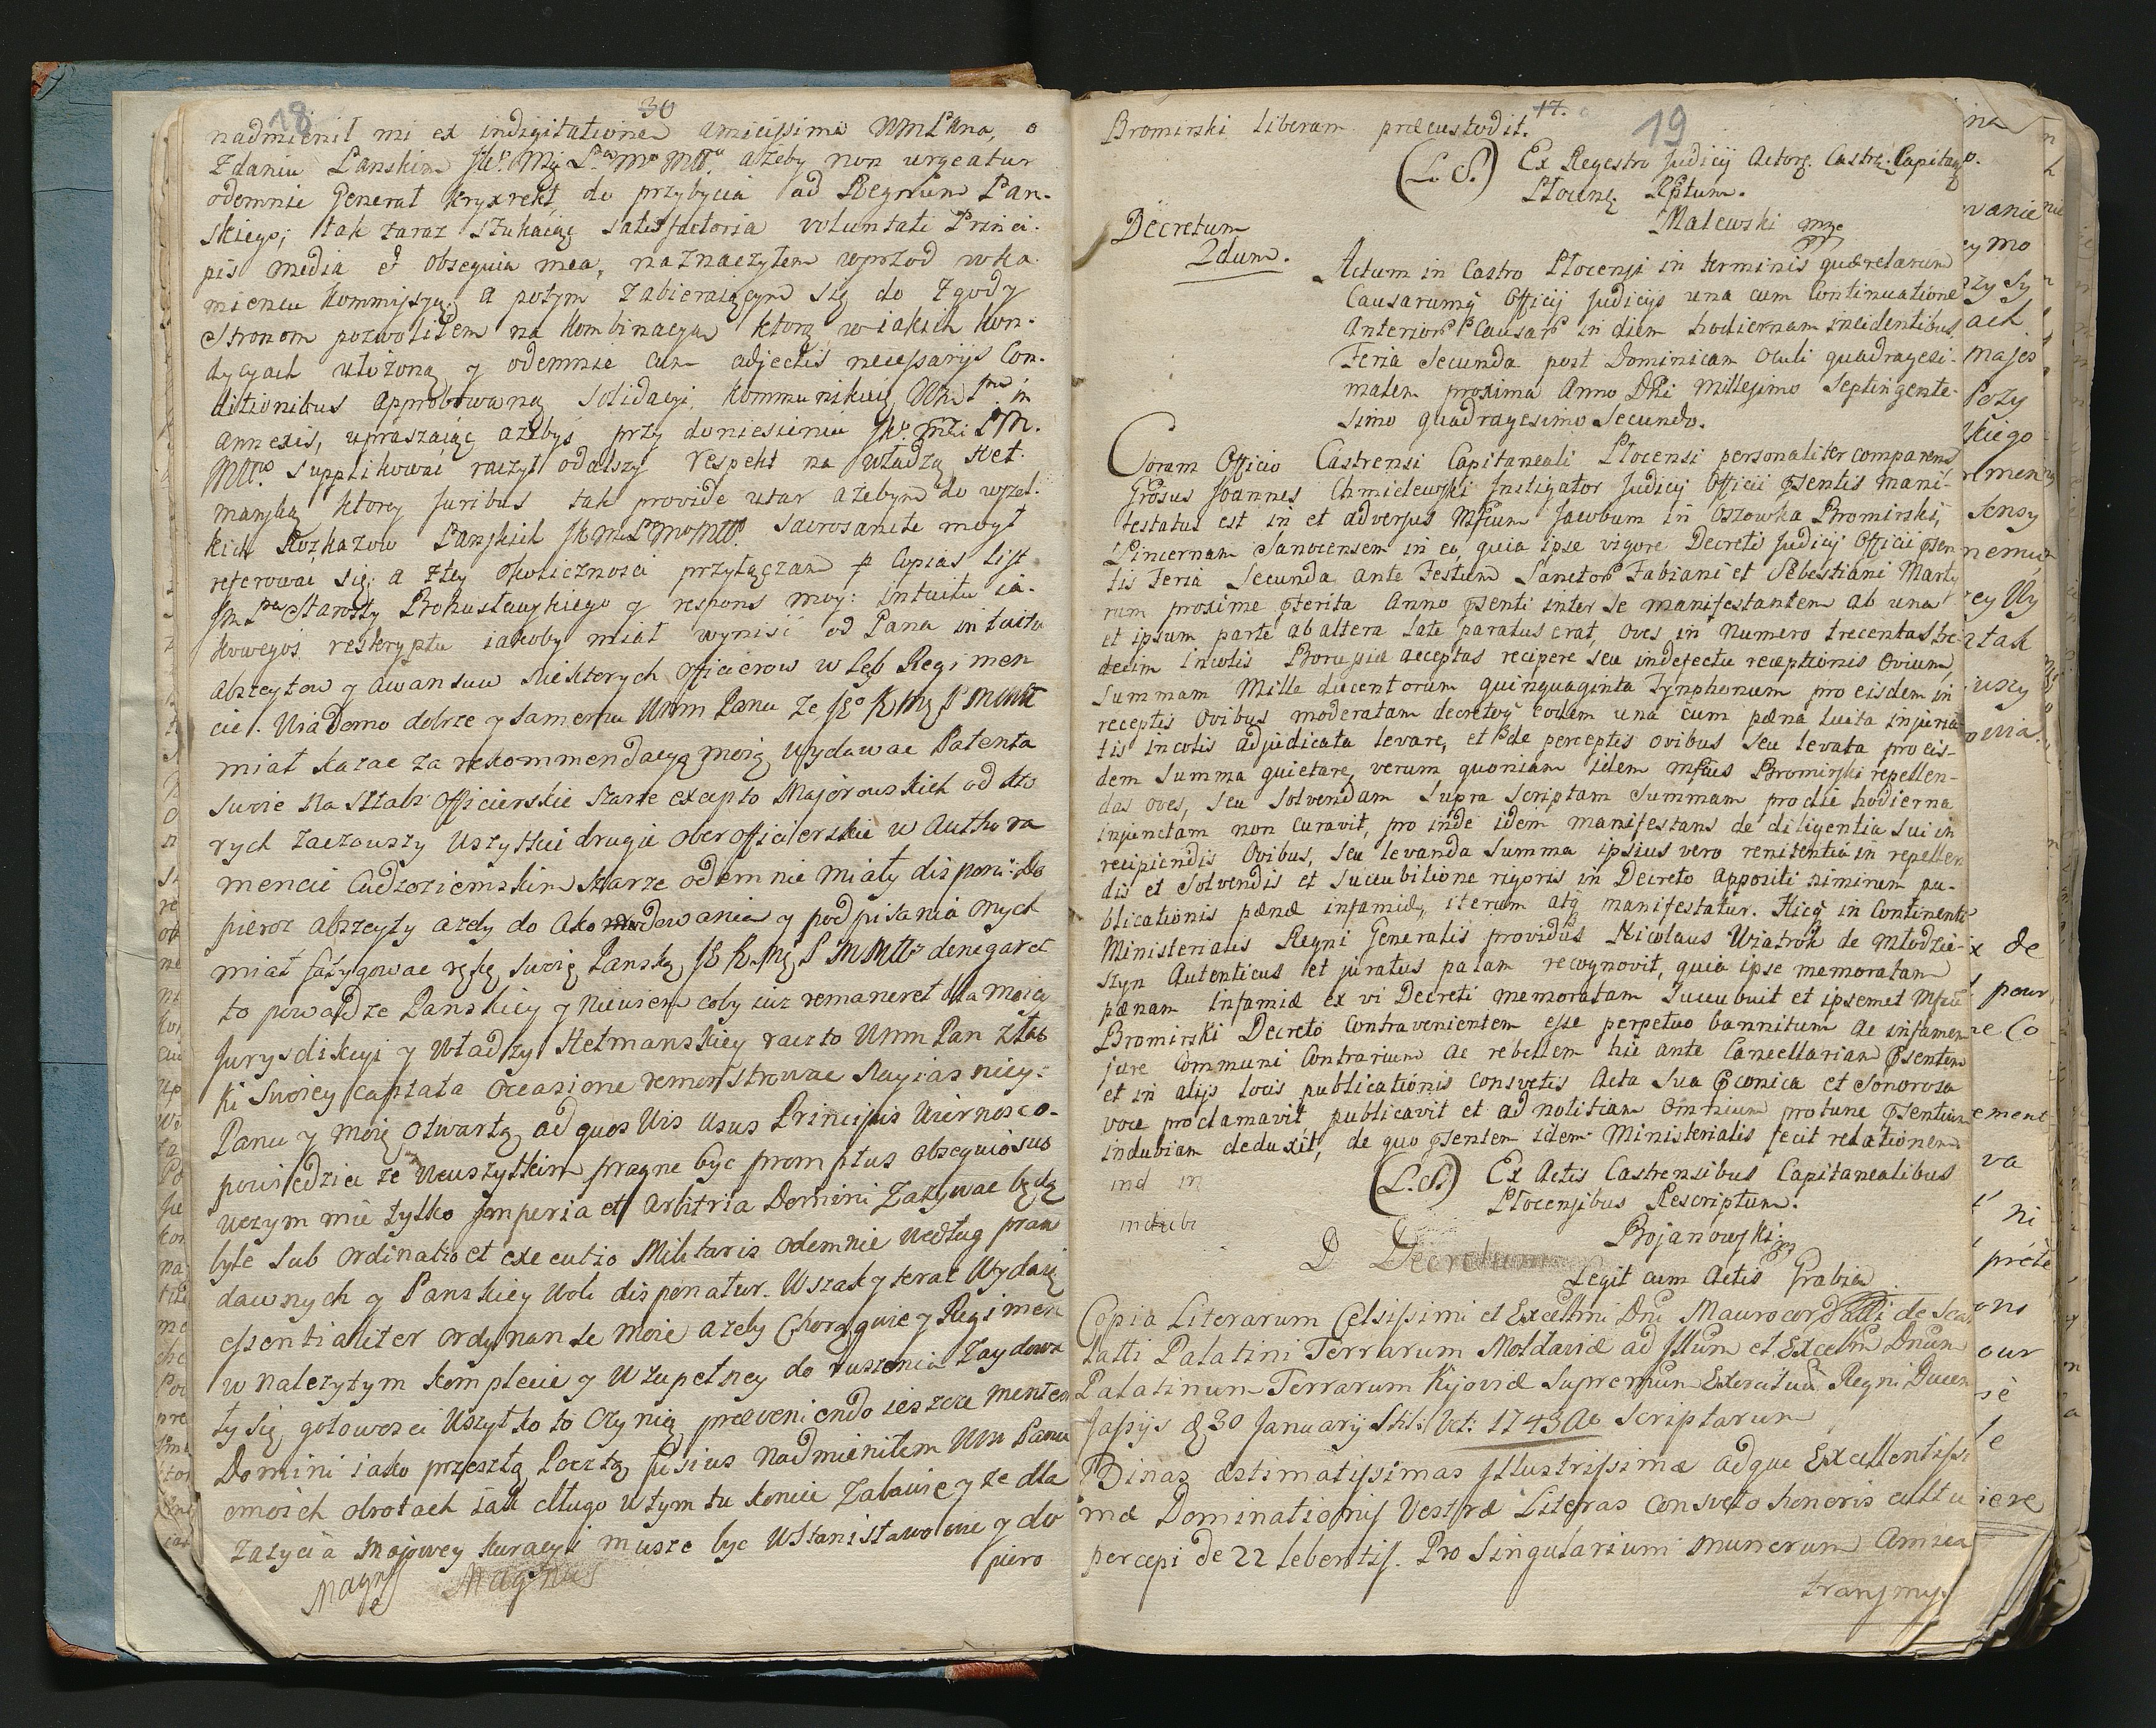 18 30
nadmienił mi ex indigitatione amicissima WMPana, o
Zdaniu Pańskim ażeby non urgeatur
odemnie Generał Kryxrekt, do przybycia ad Regnum Pań-
skiego; tak zaraz szukaiąc satisfactoria voluntati Princi-
pis media et obsequia mea, naznaczyłem wprzod w Ka-
mieńcu Kommissyą, a potym zabieraiącym się do Zgody
Stronom pozwoliłem na Kombinacyą ktorą w iakich Kon-
dycyach ułożoną y odemnie cum adjectis necessarijs Con-
ditionibus approbowaną Solidacyi, Kommunikuię in
annexis, upraszaiąc ażebyś przy doniesieniu
supplikować raczył o dalszy respekt na władzą Het-
mańską, ktorey Juribus tak provide utar ażebym do wszel-
kich Rozkazow Pańskich Sacrosancte mogł
referować się, a z tey okoliczności przyłączam Copias List
Starosty Bohusławskiego y respons moy: intuitu ia-
kowegoś reskryptu iakoby miał wyniść od Pana intuitu
abszeytow y awansow Niektorych Officierow w Łeb Regimen
cie. Wiadomo dobrze y samemu Wmm Panu ze
miał kazac za rekommendacyą moią wydawac Patenta
swoie na Sztabs Officierskie Szarże excepto Majorowskich od kto
rych zacząwszy wszystkie drugie Ober Officierskie w Autho ra
mencie Cudzoziemskim Szarże odemnie miały disponi: Do
pieroz abszeyty azeby do Akomodowania y podpisania onych
miał fatygowac rękę swoię Pańską denegaret
to powadze Pańskiey y Niewiem coby iuz remaneret dla moiey
Jurysdikcyi y Władzy Hetmańskiey raczto Wmm Pan z Łas
ki Swoiey captata occasione remonstrowac Nayiasniey:
Panu y moię otwartą ad quos Vis Usus Principis Wiernosc o-
powiedziec ze we wszytkim pragne byc promptus obsequiosus
w czym mie tylko Imperia et Arbitria Domini zazywac będą
byle sub ordinatio et executio Militaris odemnie według praw
dawnych y Pańskiey woli disponatur. Wszak y teraz wydaię
essentialiter ordynanse moie azeby Chorągwie y Regimen
w nalezytym komplecie y w zupełney do ruszenia Zaydowa
ły się, gotowosci wszytko to czynię, praeveniendo ieszcze mentem
Domini iako przeszłą Pocztą fusius nadmieniłem Wm Panu
o moich obrotach iak długo w tym tu koncu zabawię y ze dla
zazycia Majowey kuracyi musze byc w Stanisławowie y do
piero
Magn Magnus
17. 19
Bromirski liberam præcustodit.
(L. S.) Ex Regestro Judicij Actorq. Castrq. Capitan
Plocenq. Rptum.
Malewski mpr
Decretum
2dum.
Actum in Castro Plocensi in terminis quærelarum
Causarumq Officij Judicijs una cum Continuatione
Anterior Causar in diem hodiernam incidentibus
Feria Secunda post Dominicam Oculi quadragesi-
malem proxima Anno Dni Millesimo Septingente-
simo quadragesimo Secundo.
Coram Officio Castrensi Capitaneali Plocensi personaliter comparens
Grosus Joannes Chmielewski Instigator Judicij Officii psentis mani-
festatus est in et adversus Mfcum Jacobum in Oszowka Bromirski,
Pincernam Sanocensem in eo, quia ipse vigore Decreti Judicij Officii psen
tis Feria Secunda ante Festum Sanctor Fabiani et Sebestiani Marty
rum proxime pterita Anno psenti inter se manifestantem ab una
et ipsum parte ab altera late paratus erat, Oves in Numero trecentas tre
decim incolis Borussiæ acceptas recipere seu indefectu receptionis Ovium
Summam Mille ducentorum quinquaginta Tynphonum pro eisdem in
receptis Ovibus moderatam decretoq eodem una cum pæna luita injuria
tis incolis adjudicata levare, et de perceptis ovibus seu levata pro eis-
dem Summa quietare, verum quoniam idem Mfcus Bromirski repellen-
das oves, seu solvendam supra scriptam Summam pro die hodierna
injunctam non curavit, pro inde idem manifestans de diligentia sui in
recipiendis Ovibus, seu levanda Summa ipsius vero renitentia in repellen
dis et solvendis et succubitione rigoris in Decreto appositi nimirum pu-
blicationis pænæ infamiæ, iterum atq manifestatur. Hicq in Continenti
Ministerialis Regni Generalis providus Nicolaus Wiatrok de Młodzie-
szyn Autenticus et juratus palam recognovit, quia ipse memoratam
pænam infamiæ ex vi Decreti memoratam Succubuit et ipsemet Mfcu
Bromirski Decreto contravenientem esse perpetuo bannitum ac infamem
jure Communi Contrarium ac rebellem hic ante Cancellariam psentem
et in alijs locis publicationis consvetis Acta Sua Econica et Sonorosa
voce proclamavit, publicavit et ad notitiam Omnium protunc psentium
indubiam deduxit, de quo psentem idem Ministerialis fecit relationem
ind in
(L.S.) Ex Actis Castrensibus Capitanealibus
Plocensibus Rescriptum.
indubi
Bojanowski mp
D Decretum
Legit cum Actis Grabia
Copia Literarum Celsissimi et Excellmi Dni Maurocordatti de Scar
latti Palatini Terrarum Moldaviæ ad Illum et Excellm Dnum
Palatinum Terrarum Kijoviæ Supremum Exercituu Regni Ducem
Jassijs d 30 Januarij Stili Vet: 1743 Ao Scriptarum
Binas æstimatissimas Illustrissimæ adque Excellentissi
mæ Dominationis Vestræ Literas consveto honoris cultu
percepi de 22 lebentis. Pro Singularium munerum Amica
transmis